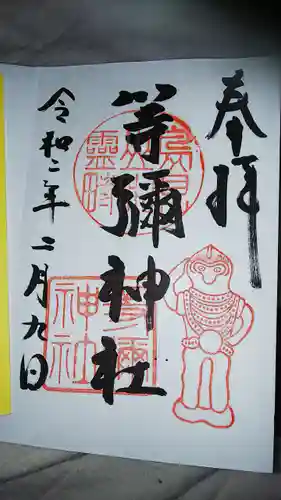 奉拝
等彌神社
令和二年二月九日
等彌神社